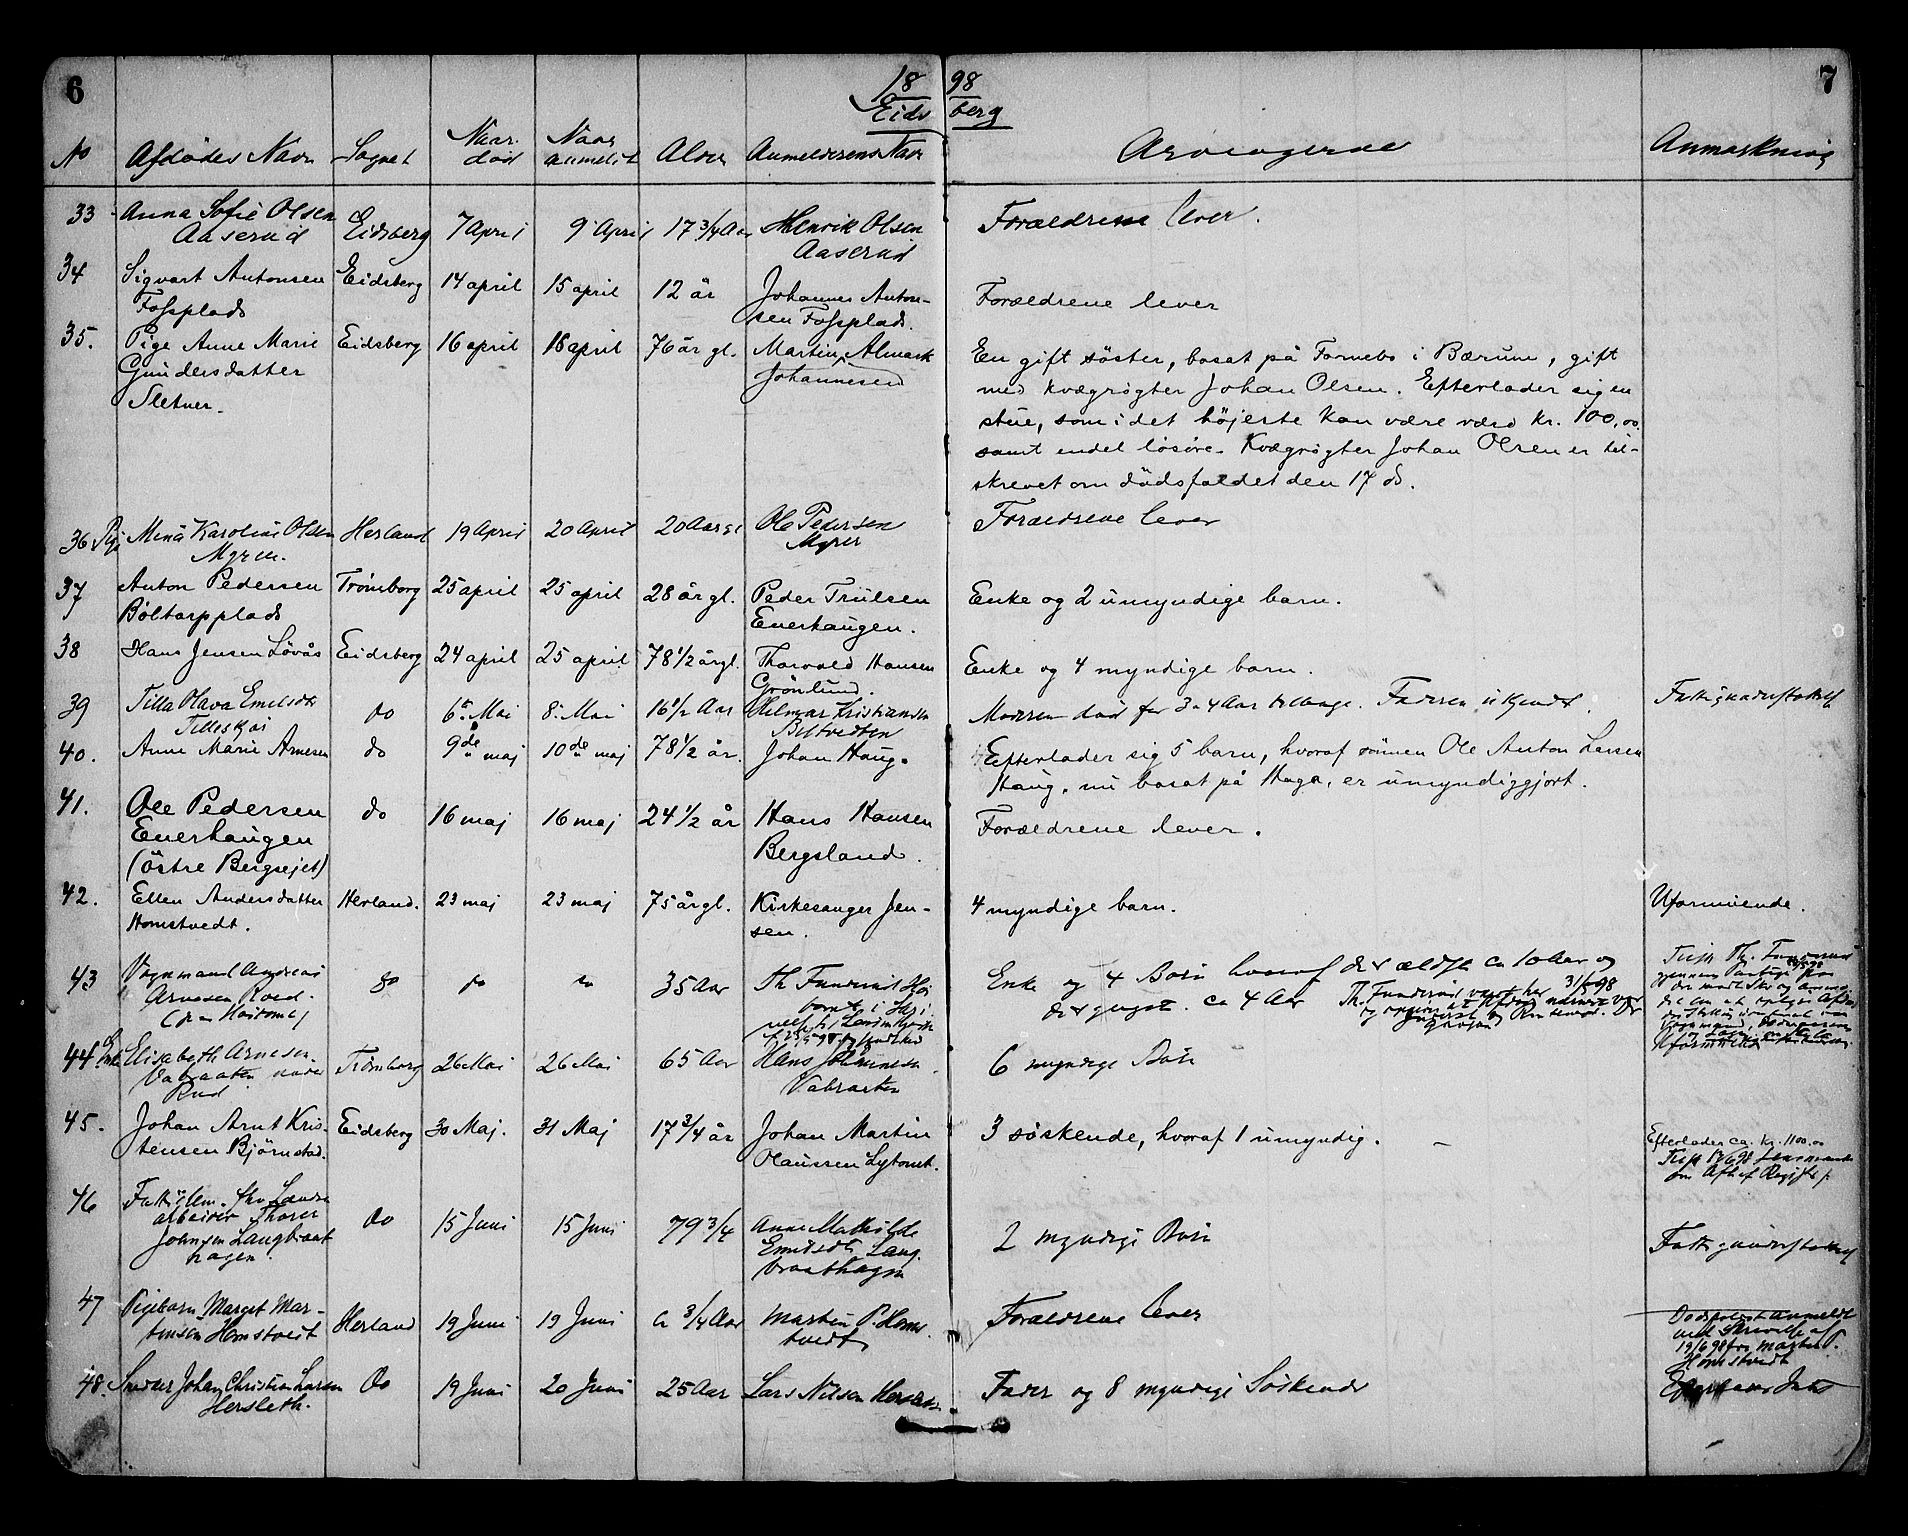 6
1898
7
Eidsberg
No Afdødes Navn Sognet Naar død Naar anmeldt Alder Anmelderens Navn Arvingerne Anmærkning
33 Anna Sofie Olsen Eidsberg 7 April 9 April 17 3/4 Aar Henrik Olsen Forældrene lever.
Aaserud Aaserud
34 Sigvart Antonsen Eidsberg 14 april 15 april 12 år Johannes Anton- Forældrene lever
Fossplads sen Fossplads.
35. Pige Anne Marie Eidsberg 16 april 18 april 76 år gl. Martin Almark En gift søster, bosat på Fornebo i Bærum, gift
Gundersdatter Johannesen med kvægrøgter Johan Olsen. Efterlader sig en
Sletner. stue, som i det højeste kan være værd kr. 100,00
samt endel løsøre. Kvægrøgter Johan Olsen er til-
skrevet om dødsfaldet den 17 ds.
36 Pige Mina Karoline Olsen Herland 19 April 20 April 20 Aar gl Ole Pedersen Forældrene lever
Myren. Myrer
37 Anton Pedersen Trømborg 25 april 25 april 28 år gl. Peder Trulsen Enke og 2 umyndige barn.
Bøltorpplads Enerhaugen.
38 Hans Jensen Løvås Eidsberg 24 april 25 april 78 1/2 år gl. Thorvald Hansen Enke og 4 myndige barn.
Grønlund.
39 Tilla Olava Emilsdtr do 6. Mai 8. Mai 16 1/2 Aar Hilmar Kristiansen Moderen død for 3 a 4 Aar tilbage. Faderen ukjendt. Fattigunderstøttet
40. Anne Marie Arnesen do 9de maj 10de maj 78 1/2 år. Johan Haug. Efterlader sig 5 barn, hvoraf sønnen Ole Anton Larsen
Haug, nu bosat på Haga, er umyndiggjort.
41. Ole Pedersen do 16 maj 16 maj 24 1/2 år Hans Hansen Forældrene lever.
Enerhaugen Bergsland.
(østre Bergsejet)
42. Ellen Andersdatter Herland. 23 maj 23 maj 75 år gl. Kirkesanger Jen- 4 myndige barn. Uformuende.
Homstvedt. sen.
43 Vognmand Andreas do do 35 Aar Th. Enke og 4 Børn hvoraf det ældste ca 10 Aar og
Arnesen det yngste ca 4 Aar Th. været her 31/5 98
44 Elisabeth Arnesen Trømborg 26 Mai 26 Mai 65 Aar Hans Johannesen 6 myndige Børn
Rud
45. Johan Arnt Kris- Eidsberg 30 Maj. 31 Maj 17 3/4 år Johan Martin 3 søskende, hvoraf 1 umyndig. Efterlader ca. kr. 1100,00
tensen Bjørnstad. Olaussen Lytomt.
46 arbeider Thorer do 15 Juni 15 Juni 79 3/4 Anne Mathilde 2 myndige Børn Fattigunderstøttet
Johnsen Langbraat Emilsdtr. Lang
hagen. braathagen
47 Pigebarn Marget Mar- Herland 19 Juni 19 Juni ca 3/4 Aar Martin P. Homs Forældrene lever Dødsfaldet anmeldt
tinsen Homstvedt tvedt ved Skrivelse af
19/6 98 fra Martin P.
Homstvedt
48. Johan Christian Larsen do 19 Juni 20 Juni 25 Aar Lars Nilsen Fader og 8 myndige Søskende Efterlader Intet
Hersleth.